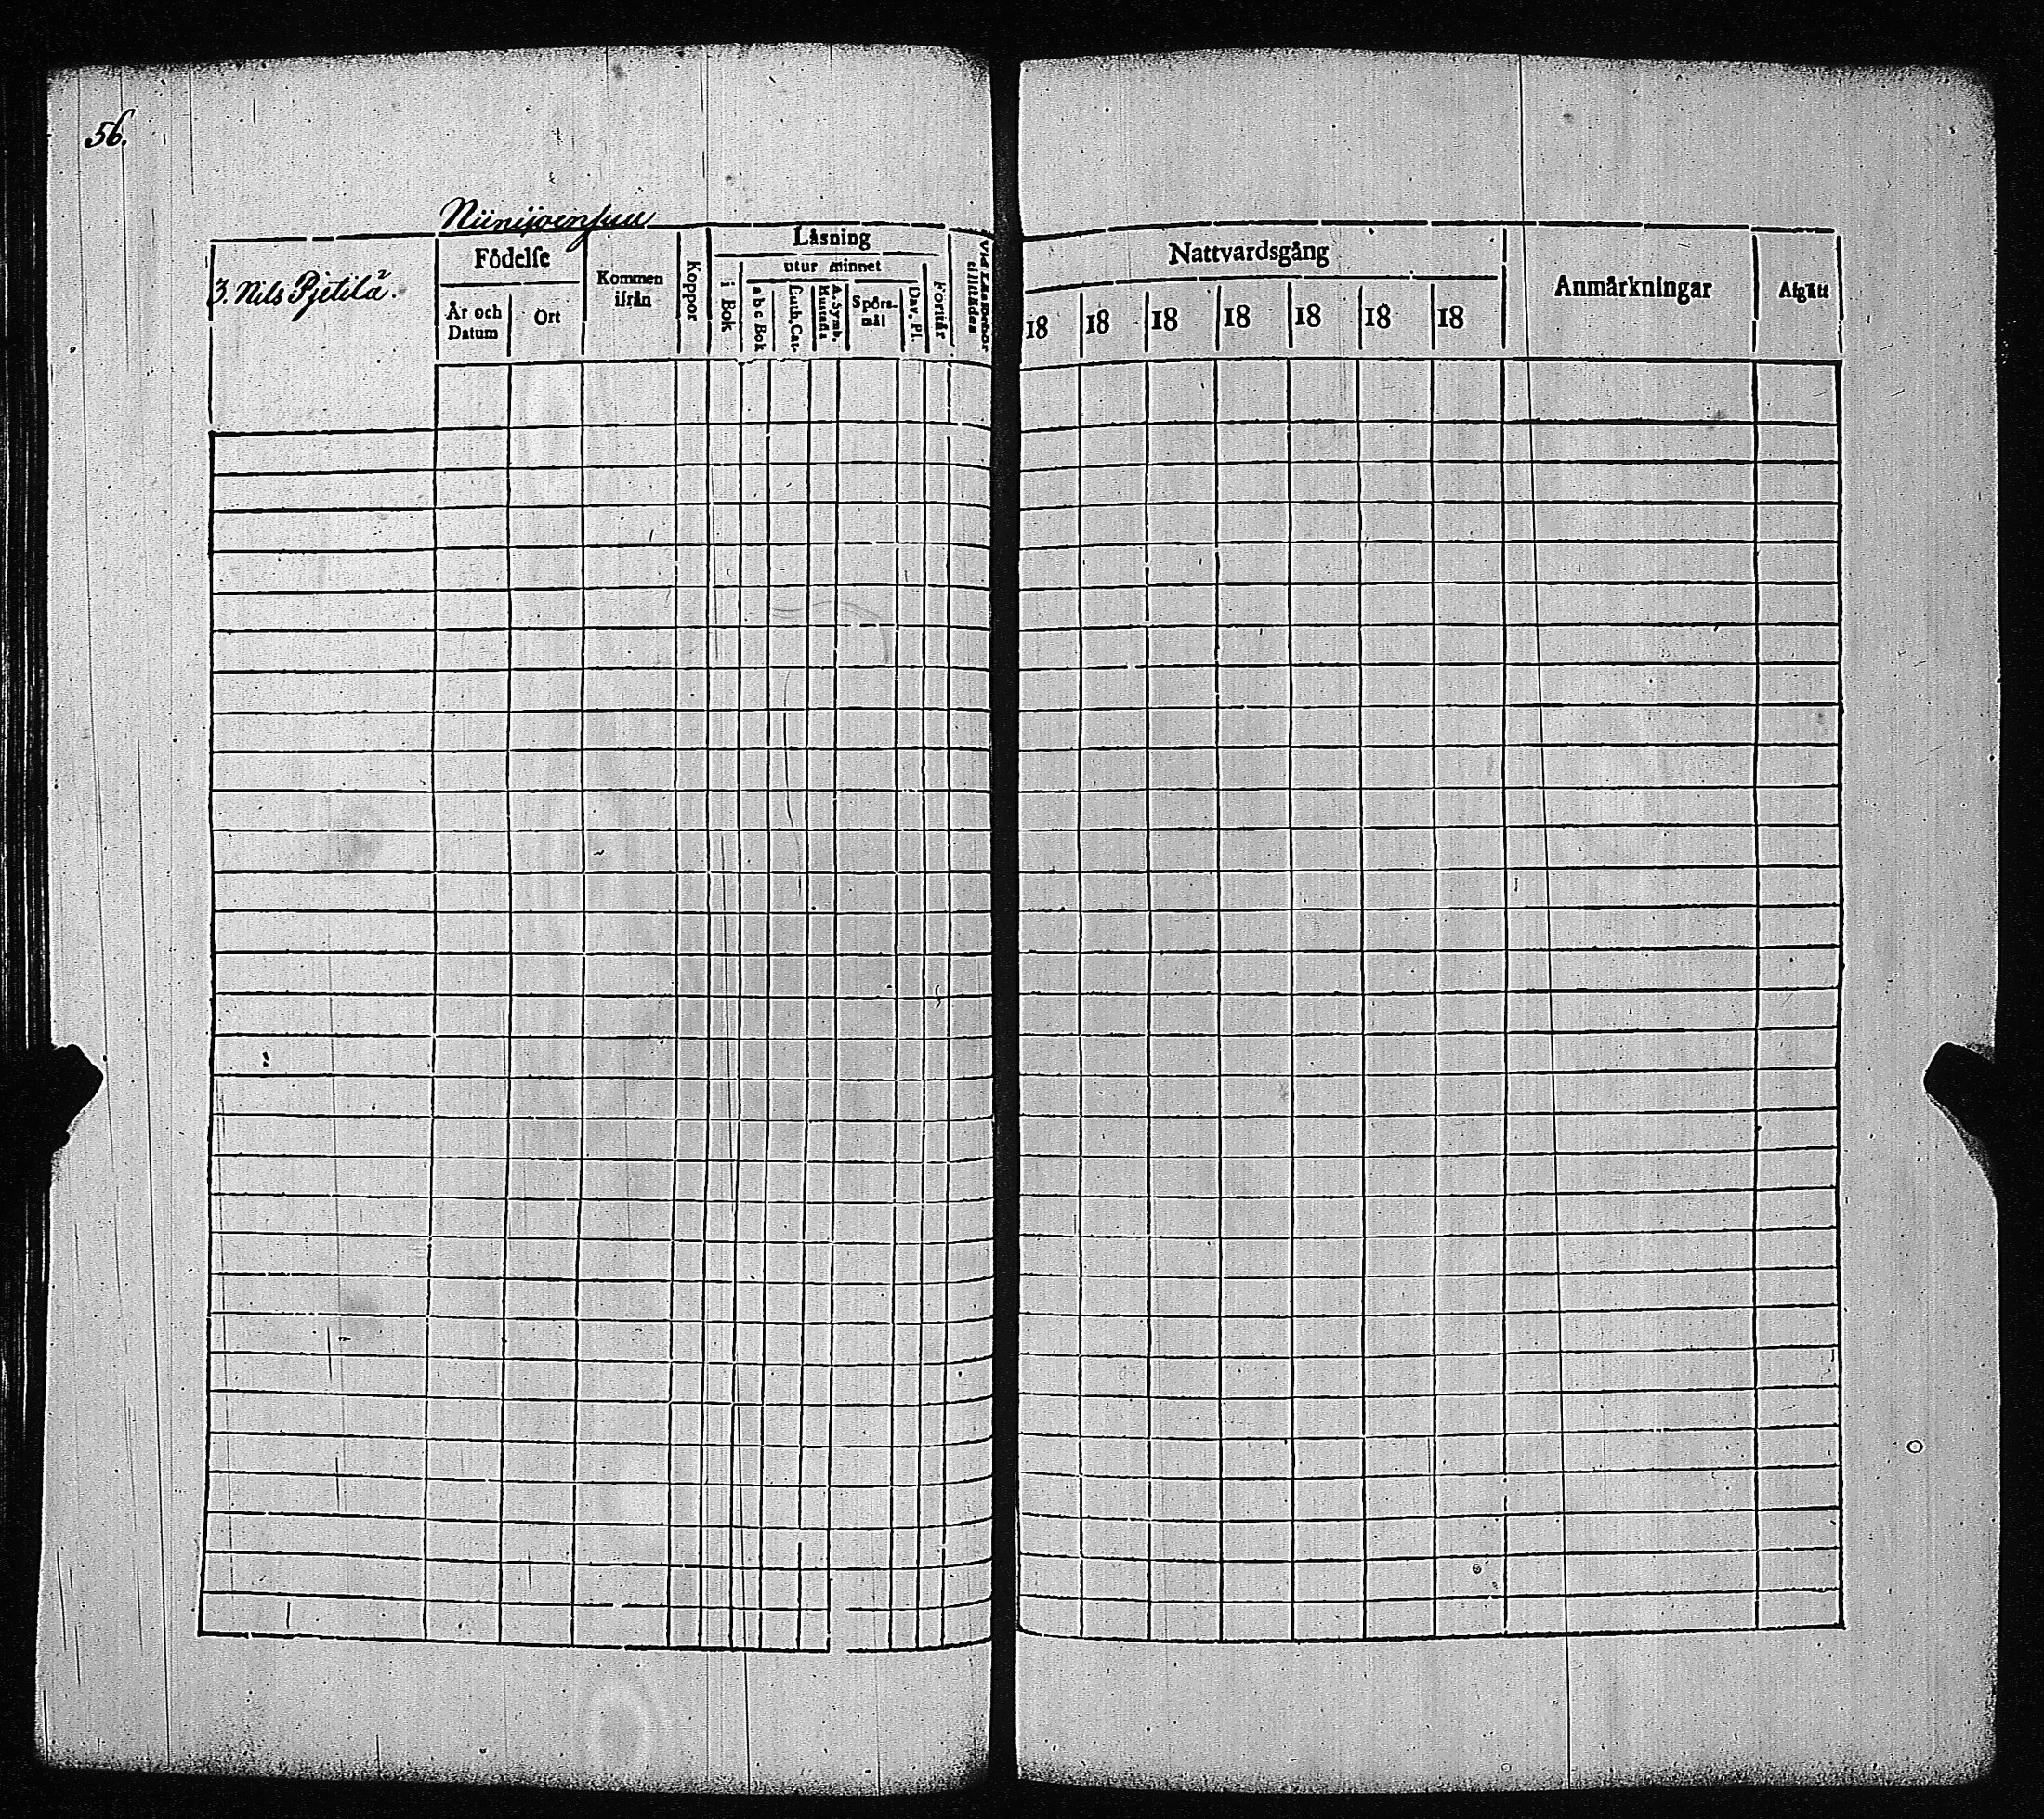 56.
Niinijoensuu
3. Nils Pjetilä 2.
Födelse
År och Datum
Ort
Kommen ifrån
Koppor
Läsning
i Bok
utur minnet
a b c Bok
Luth. Cat.
A. Symb.
Spörs-mål
Dav. Ps.
Förstår
tillstädes
Nattvardsgång
18 18 18 18 18 18 18
Anmärkningar
Afgått